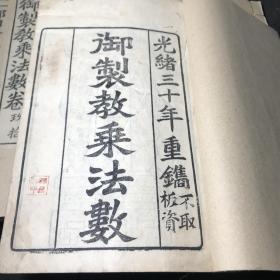 光緒三十年重鐫不取板資
御製教乗法數
御製教乗法數卷